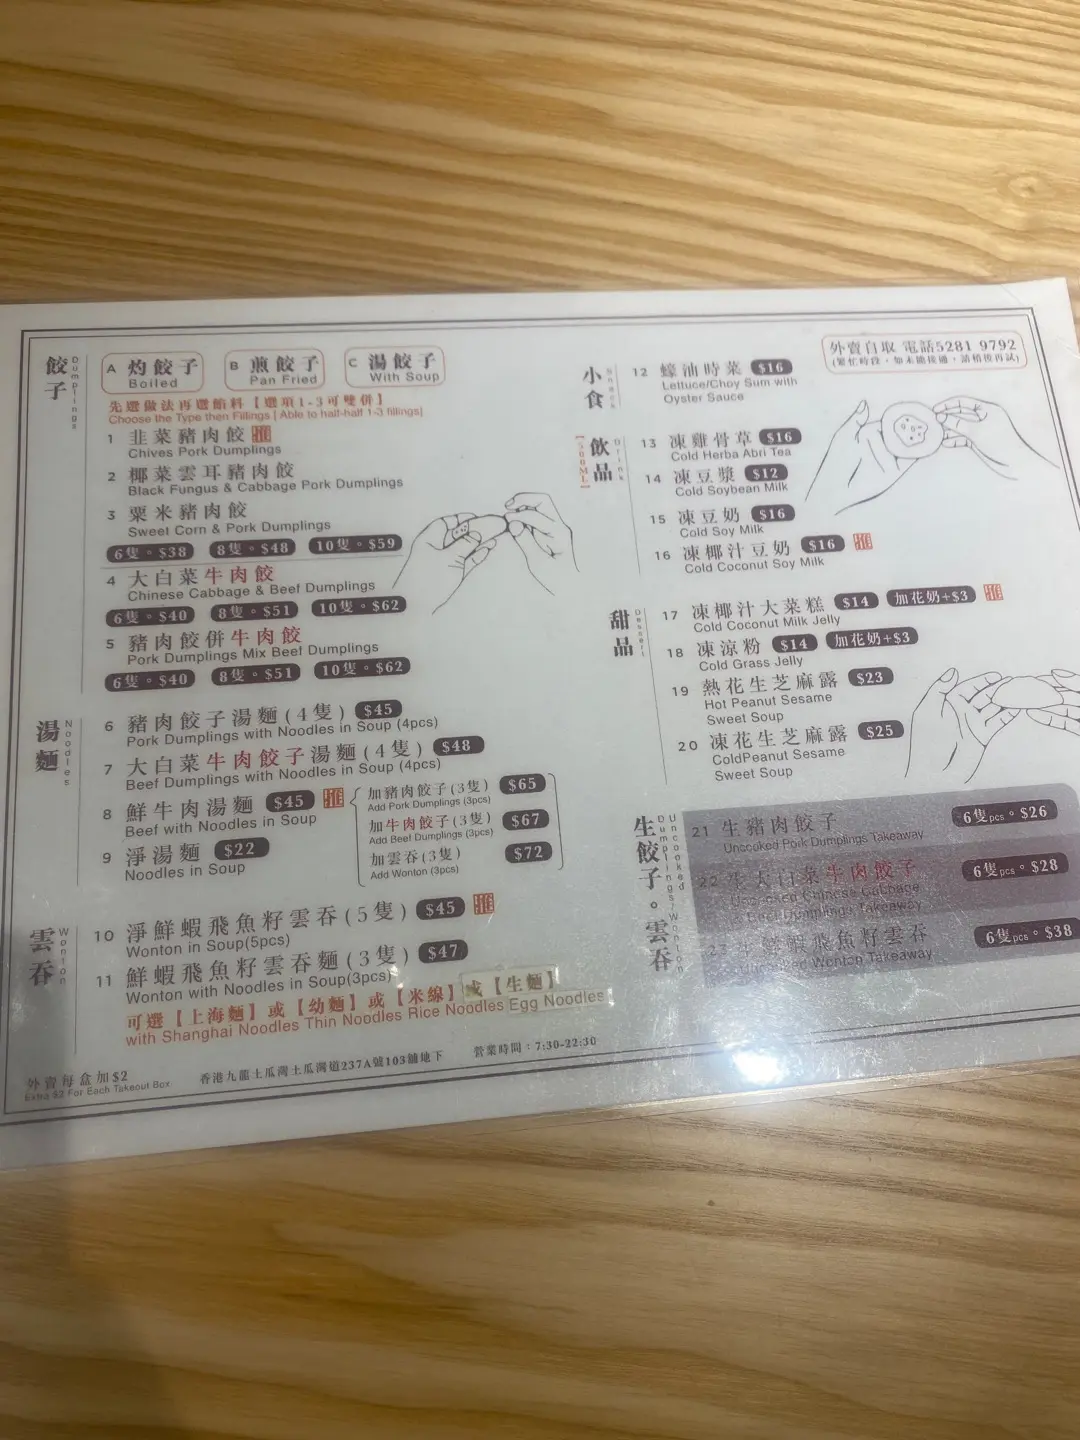 餃子 Dumplings
A 灼餃子 Boiled
B 煎餃子 Pan Fried
C 湯餃子 With Soup
先選做法再選餡料【選項1-3可雙併】
Choose the Type then Fillings [ Able to half-half 1-3 fillings]
1 韭菜豬肉餃 推
Chives Pork Dumplings
2 椰菜雲耳豬肉餃
Black Fungus & Cabbage Pork Dumplings
3 粟米豬肉餃
Sweet Corn & Pork Dumplings
6隻。$38 8隻。$48 10隻。$59
4 大白菜牛肉餃
Chinese Cabbage & Beef Dumplings
6隻。$40 8隻。$51 10隻。$62
5 豬肉餃併牛肉餃
Pork Dumplings Mix Beef Dumplings
6隻。$40 8隻。$51 10隻。$62
湯麵 Noodles
6 豬肉餃子湯麵(4隻) $45
Pork Dumplings with Noodles in Soup (4pcs)
7 大白菜牛肉餃子湯麵(4隻) $48
Beef Dumplings with Noodles in Soup (4pcs)
8 鮮牛肉湯麵 $45 推
Beef with Noodles in Soup
9 淨湯麵 $22
Noodles in Soup
加豬肉餃子(3隻) $65
Add Pork Dumplings (3pcs)
加牛肉餃子(3隻) $67
Add Beef Dumplings (3pcs)
加雲吞(3隻) $72
Add Wonton (3pcs)
雲吞 Wonton
10 淨鮮蝦飛魚籽雲吞(5隻) $45 推
Wonton in Soup(5pcs)
11 鮮蝦飛魚籽雲吞麵(3隻) $47
Wonton with Noodles in Soup(3pcs)
可選【上海麵】或【幼麵】或【米線】或【生麵】
with Shanghai Noodles Thin Noodles Rice Noodles Egg Noodles
外賣每盒加$2
Extra $2 For Each Takeout Box
香港九龍土瓜灣土瓜灣道237A號103舖地下
營業時間：7:30-22:30
外賣自取 電話5281 9792
(繁忙時段，如未能接通，請稍後再試)
小食
12 蠔油時菜 $16
Lettuce/Choy Sum with
Oyster Sauce
飲品 Drink
【500ML】
13 凍雞骨草 $16
Cold Herba Abri Tea
14 凍豆漿 $12
Cold Soybean Milk
15 凍豆奶 $16
Cold Soy Milk
16 凍椰汁豆奶 $16 推
Cold Coconut Soy Milk
甜品 Dessert
17 凍椰汁大菜糕 $14 加花奶+$3 推
Cold Coconut Milk Jelly
18 凍涼粉 $14 加花奶+$3
Cold Grass Jelly
19 熱花生芝麻露 $23
Hot Peanut Sesame
Sweet Soup
20 凍花生芝麻露 $25
ColdPeanut Sesame
Sweet Soup
生餃子。雲吞 Uncooked Dumplings/Wonton
21 生豬肉餃子 6隻pcs。$26
Uncooked Pork Dumplings Takeaway
22 生大白菜牛肉餃子 6隻pcs。$28
Uncooked Chinese Cabbage
Beef Dumplings Takeaway
23 蝦飛魚籽雲吞 6隻pcs。$38
Wonton Takeaway